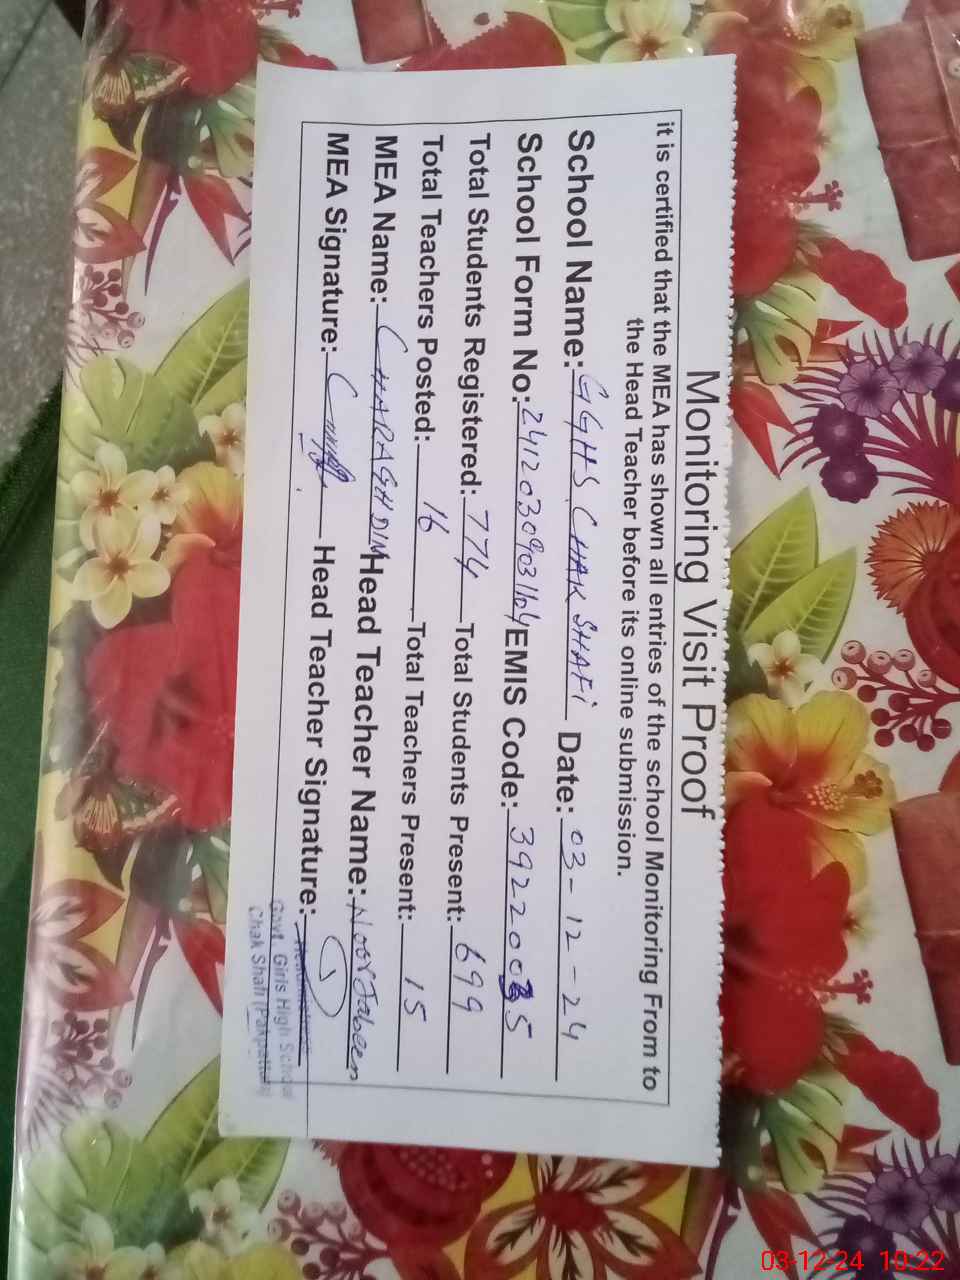 Monitoring Visit Proof
it is certified that the MEA has shown all entries of the school Monitoring From to
the Head Teacher before its online submission.
School Name: GGHS CHAK SHAFI Date: 03-12-24
School Form No: EMIS Code: 39220035
Total Students Registered: 774 Total Students Present: 699
Total Teachers Posted: 16 Total Teachers Present: 15
MEA Name: CHARAGH DIN Head Teacher Name: Noor Jabeen
MEA Signature: Head Teacher Signature:
Headmistress
Govt. Girls High School
Chak Shafi (Pakpattan)
03-12-24 10:22